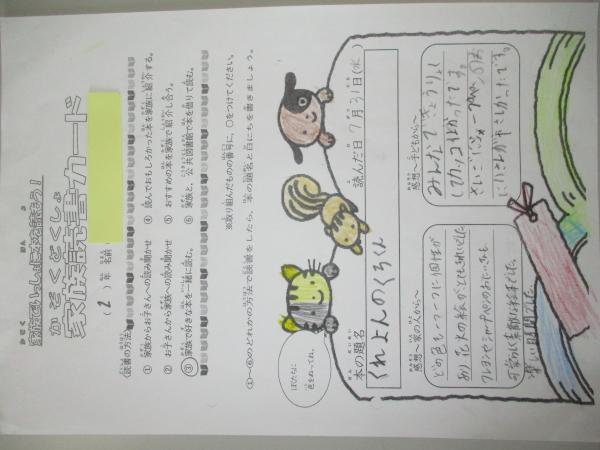 家族でいっしょに本を読もう！
かぞくどくしょ
家族読書カード
（2）年 名前（
〈読書の方法〉
① 家族からお子さんへの読み聞かせ
② お子さんから家族への読み聞かせ
③ 家族で好きな本を一緒に読む。
④ 読んでおもしろかった本を家族に紹介する。
⑤ おすすめの本を家族で紹介し合う。
⑥ 家族と、公共図書館で本を借りて読む。
※取り組んだものの番号に、○をつけてください。
①～⑥のどれかの方法で読書をしたら、本の題名と日にちを書きましょう。
ぼくたちに
色をぬってね。
本の題名
くれよんのくろくん
読んだ日 7月31日（水）
感想～家の人から～
どの色も一つ一つに個性が
あり、花火の絵がとても
クレヨンとシャープペンのおにいさんも
楽しい時間でした。
感想～子どもから～
みんなできょうりょく
してカッコ良かったです。
さいごにシャープペンのお
にいさんがやさしかったです。